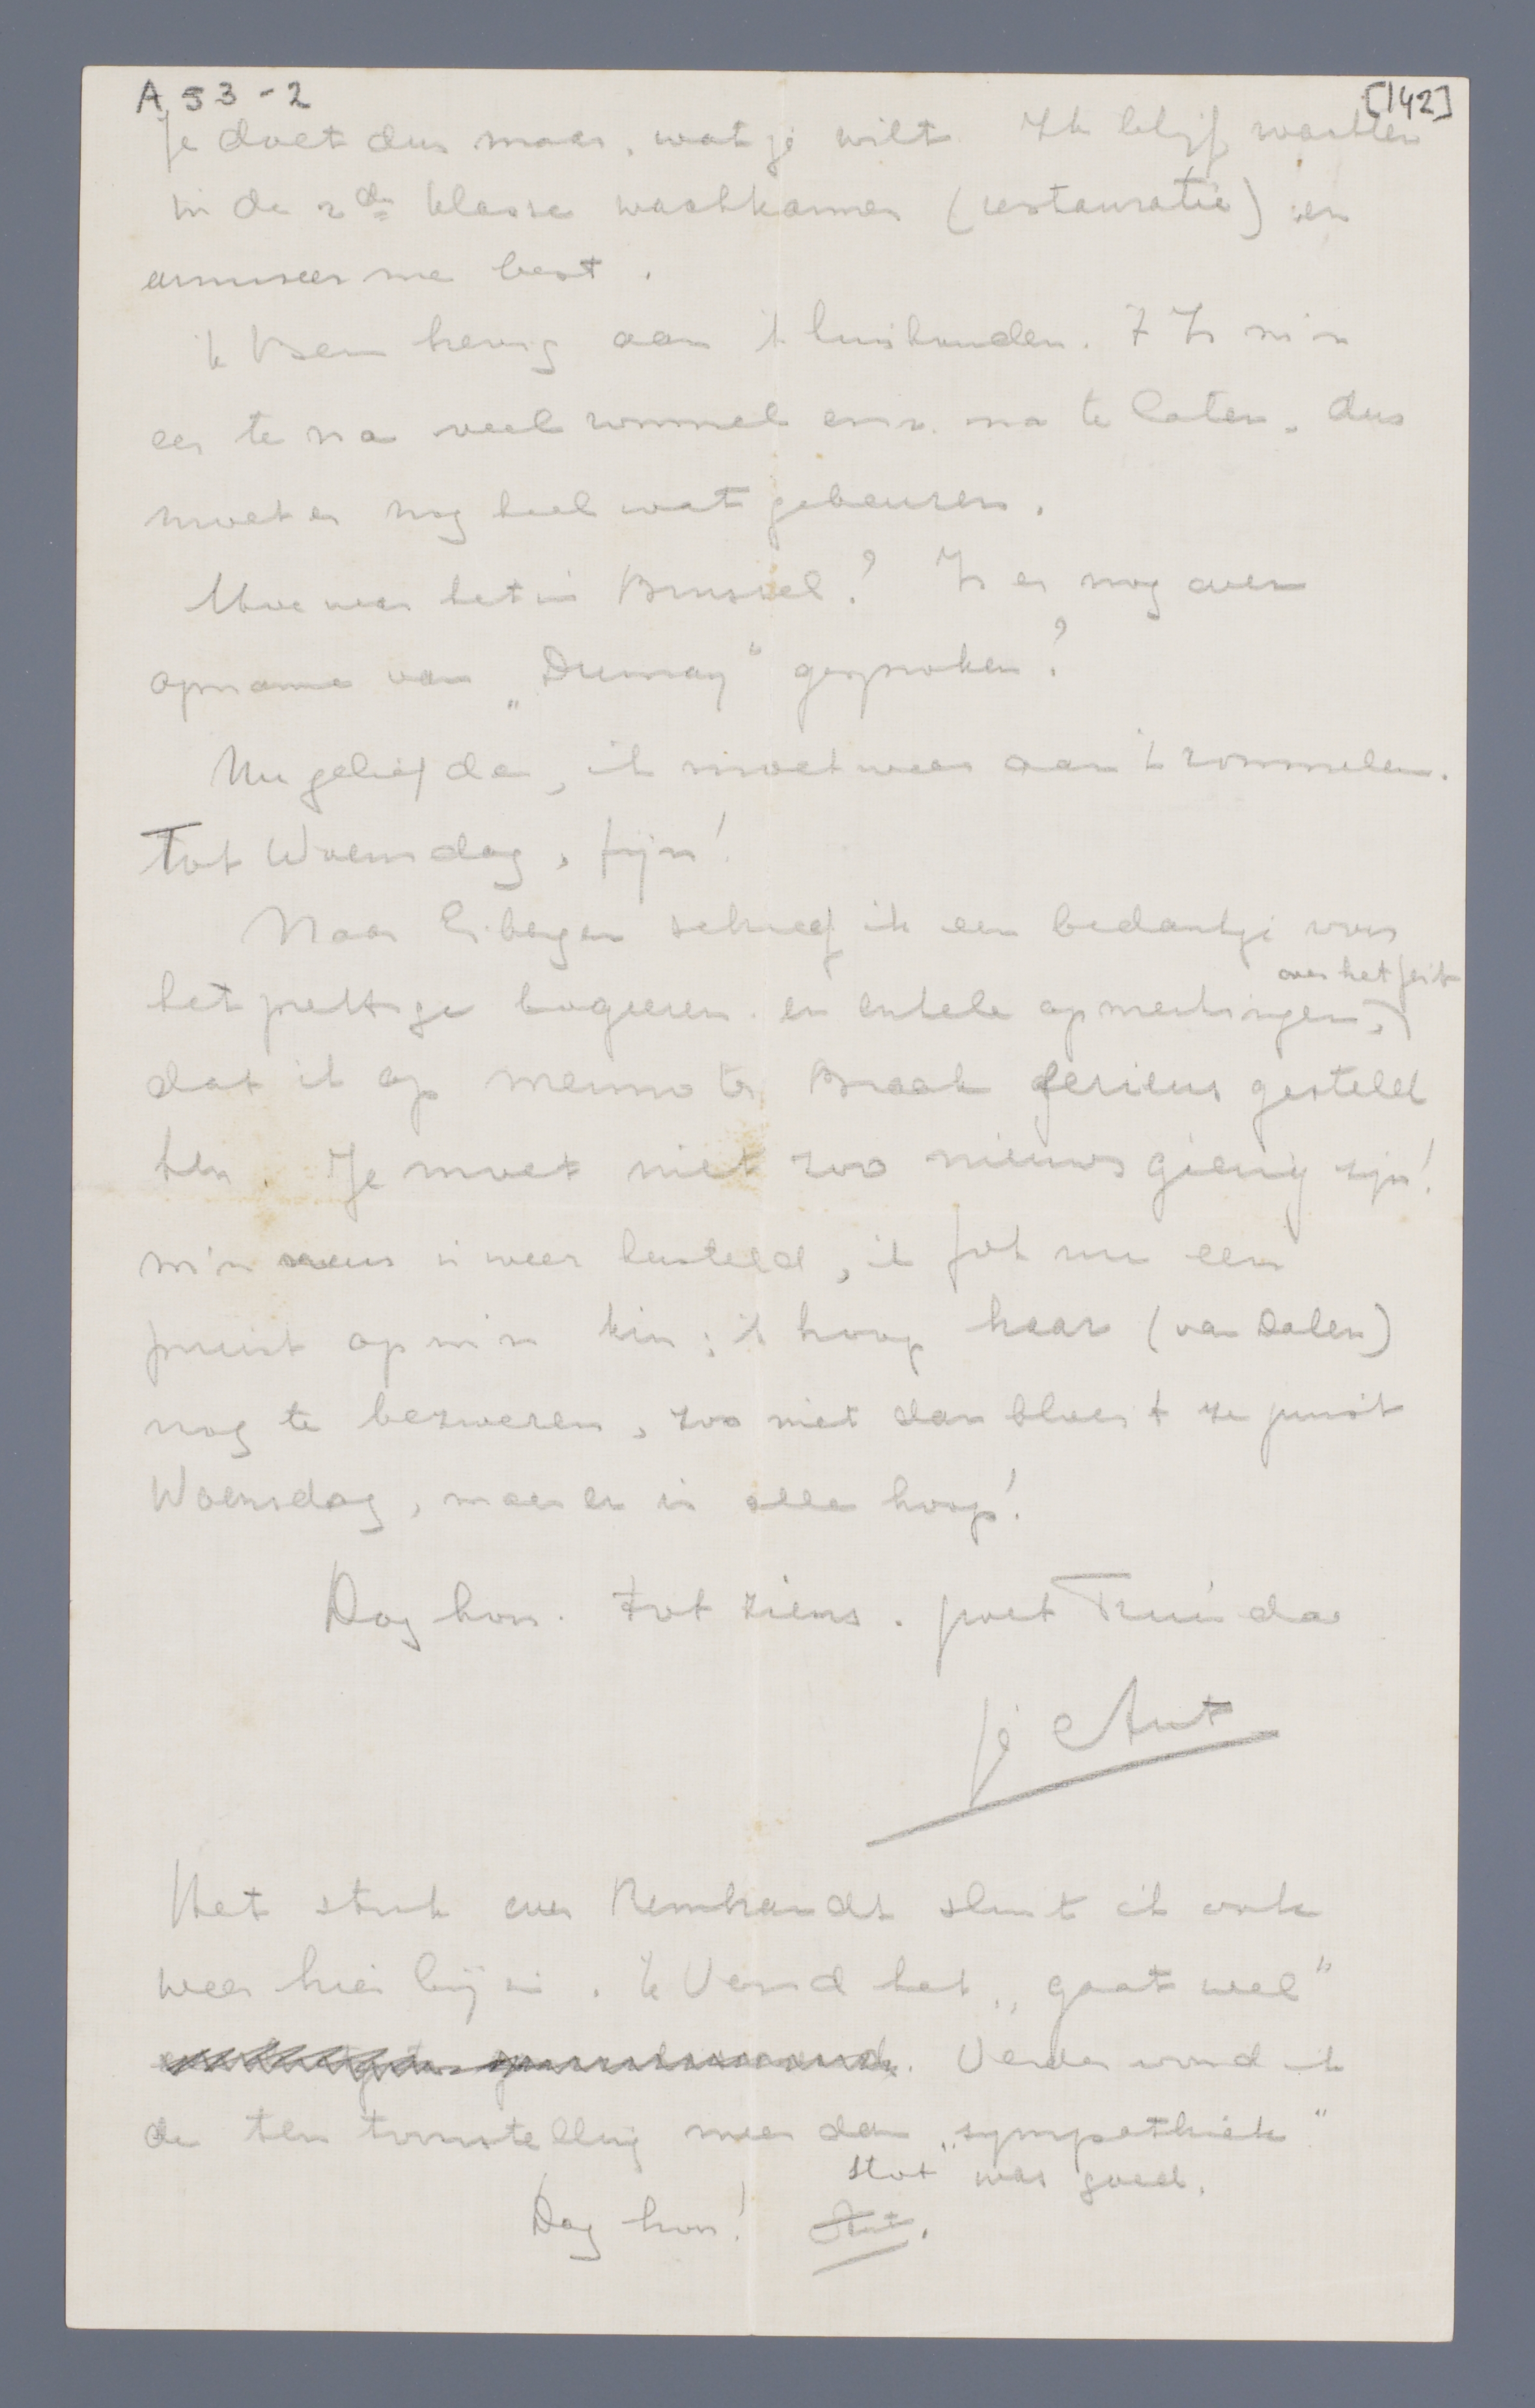 A 53-2
[142]
Je doet dus maar, wat je wilt. Ik blijf wachten
in de 2de klasse wachtkamer (restauratie) en
amuseer me best.
'k Ben hevig aan 't huishouden. 't Is m'n
eer te na veel rommel enz. na te laten, dus
moet er nog heel wat gebeuren.
Hoe was het in Brussel? Is er nog over
opname van „Dumay" gesproken?
Nu geliefde, ik moet weer aan 't rommelen.
Tot Woensdag, fijn!
Naar Eibergen schreef ik een bedankje voor
het prettige logeeren en enkele opmerkingen, over het feit
dat ik op Menno ter Braak serieus gesteld
ben. Je moet niet zoo nieuwsgierig zijn!
M'n neus is weer hersteld, ik fok nu een
puist op m'n kin; ik hoop haar (van Dalen)
nog te bezweren, zoo niet dan bloeit ze juist
Woensdag, maar er is alle hoop!
Dag hon. tot ziens. poet Truida
je Ant
Het stuk over Rembrandt sluit ik ook
weer hierbij in. 'k Vond het „gaat wel"
Verder vond ik
de tentoonstelling meer dan „sympathiek"
slot was goed.
Dag hon! Ant.